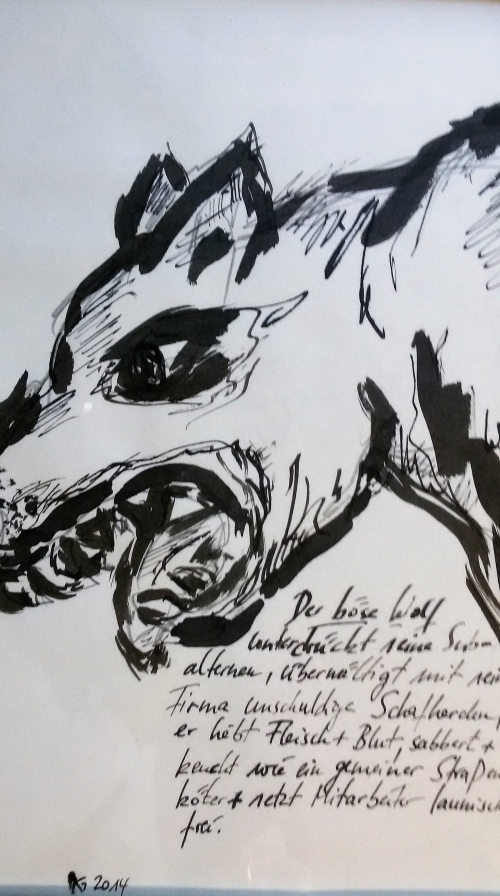 Der böse Wolf
unterdrückt seine Sub-
alternen, überwältigt mit sein
Firma unschuldige Schafherden,
er hebt Fleisch + Blut, sabbert +
keucht wie ein gemeiner Straßen
köter + setzt Mitarbeiter launisch
frei.
KG 2014